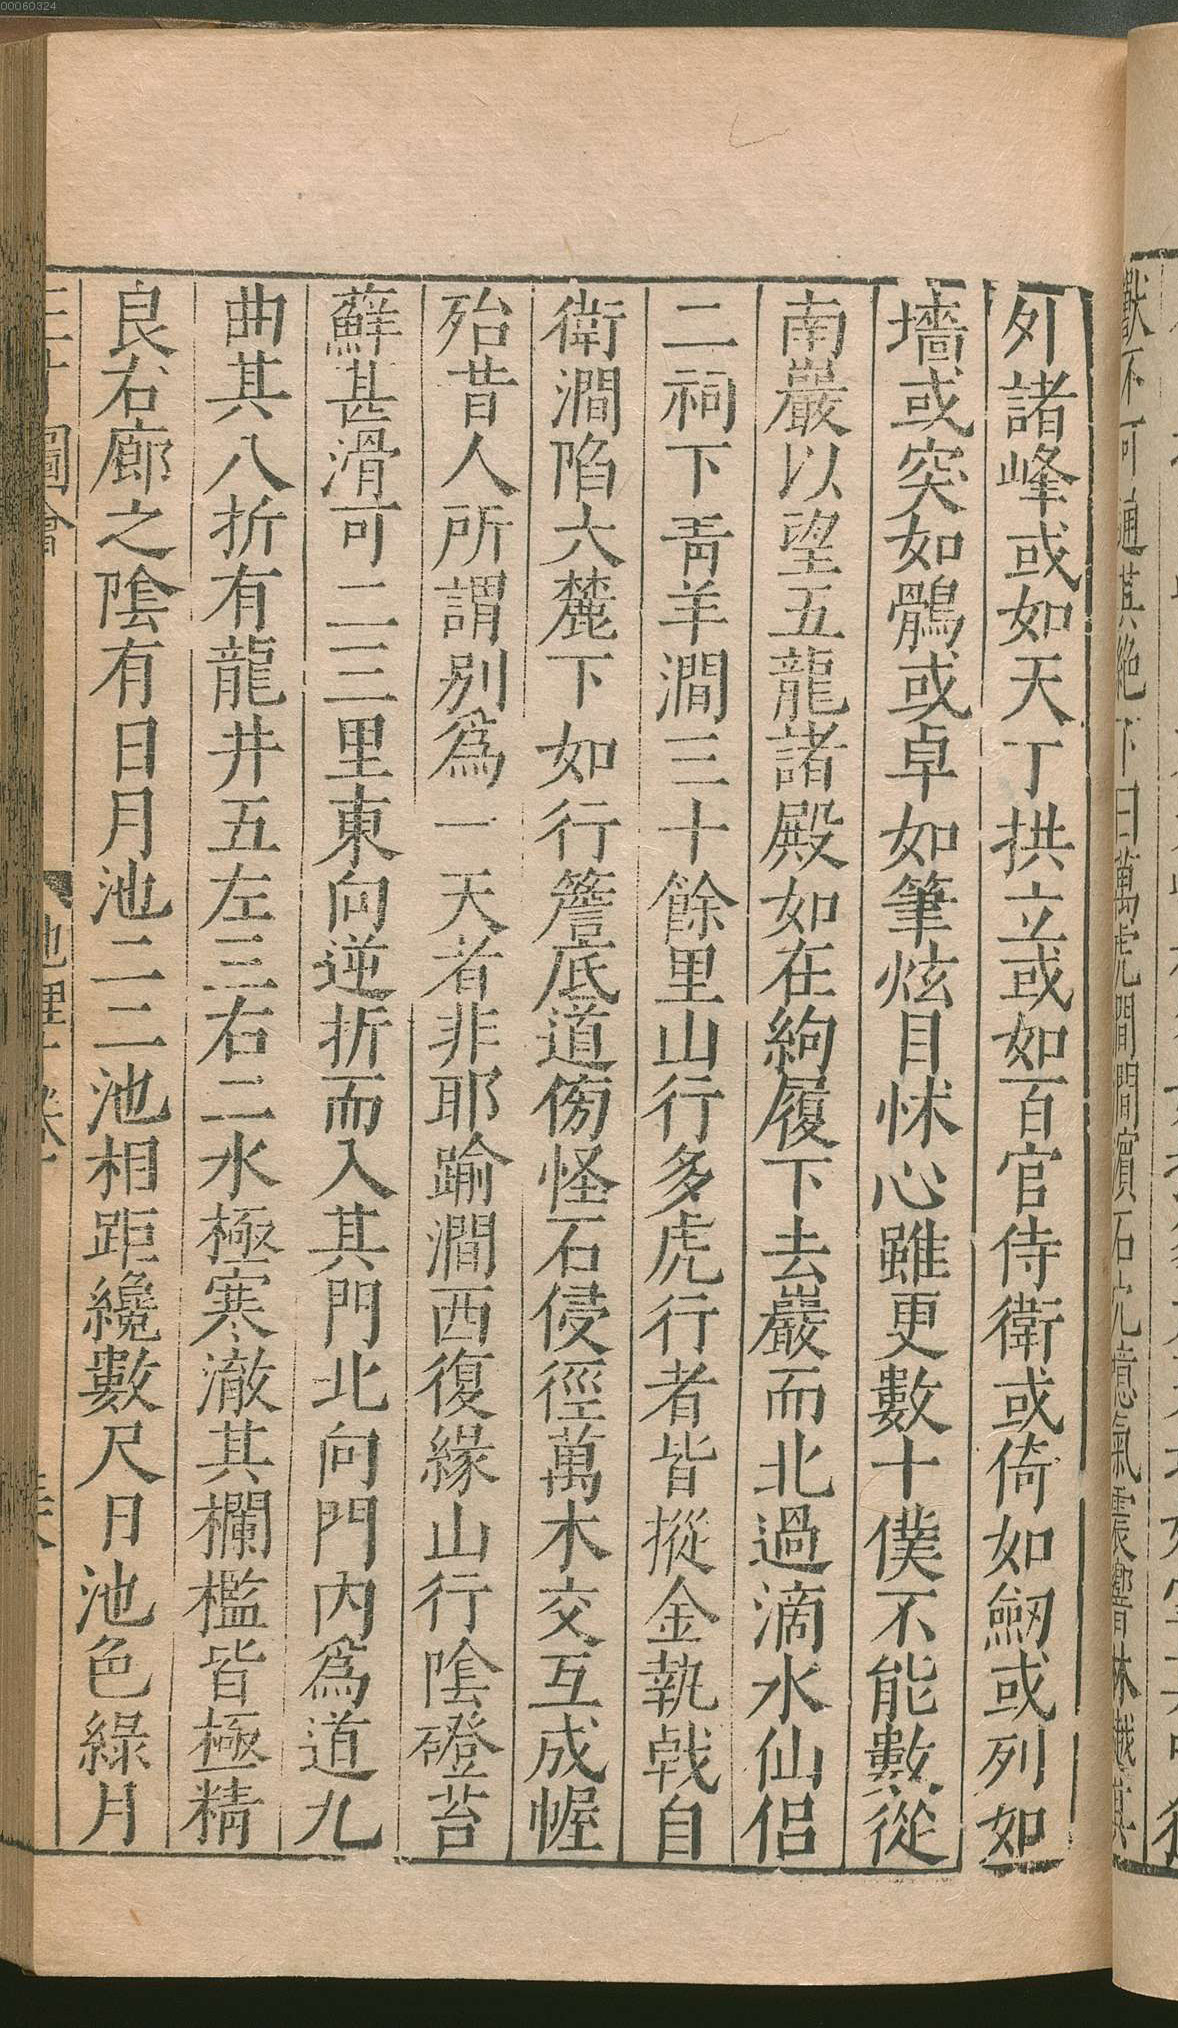 00060324
獸不可通其絕下曰萬虎澗澗濱石
氣震響林越其
外諸峰或如天丁拱立或如百官侍衛或倚如劒或列如
墻或突如鶻或卓如筆炫目怵心雖更數十僕不能數從
南巖以望五龍諸殿如在絇履下去巖而北過滴水仙侶
二祠下青羊澗三十餘里山行多虎行者皆摐金執戟自
衛澗陷大麓下如行簷底道傍怪石侵徑萬木交互成幄
殆昔人所謂別爲一天者非耶踰澗西復緣山行陰磴苔
蘚甚滑可二三里東向逆折而入其門北向門內爲道九
曲其八折有龍井五左三右二水極寒澈其欄檻皆極精
良右廊之陰有日月池二二池相距纔數尺日池色綠月
三才圖會
地理